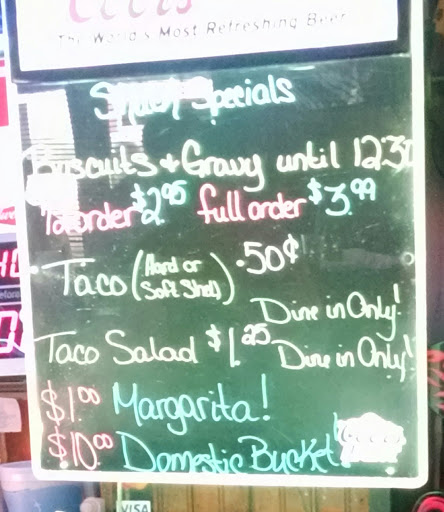 Coors
The World's Most Refreshing Beer
Specials
Biscuits + Gravy until 12:30
1/2 order $2.95 full order $3.99
Taco (Hard or Soft Shell) .50¢
Dine in Only!
Taco Salad $1.25 Dine in Only!
$1.00 Margarita!
$10.00 Domestic Bucket!
VISA